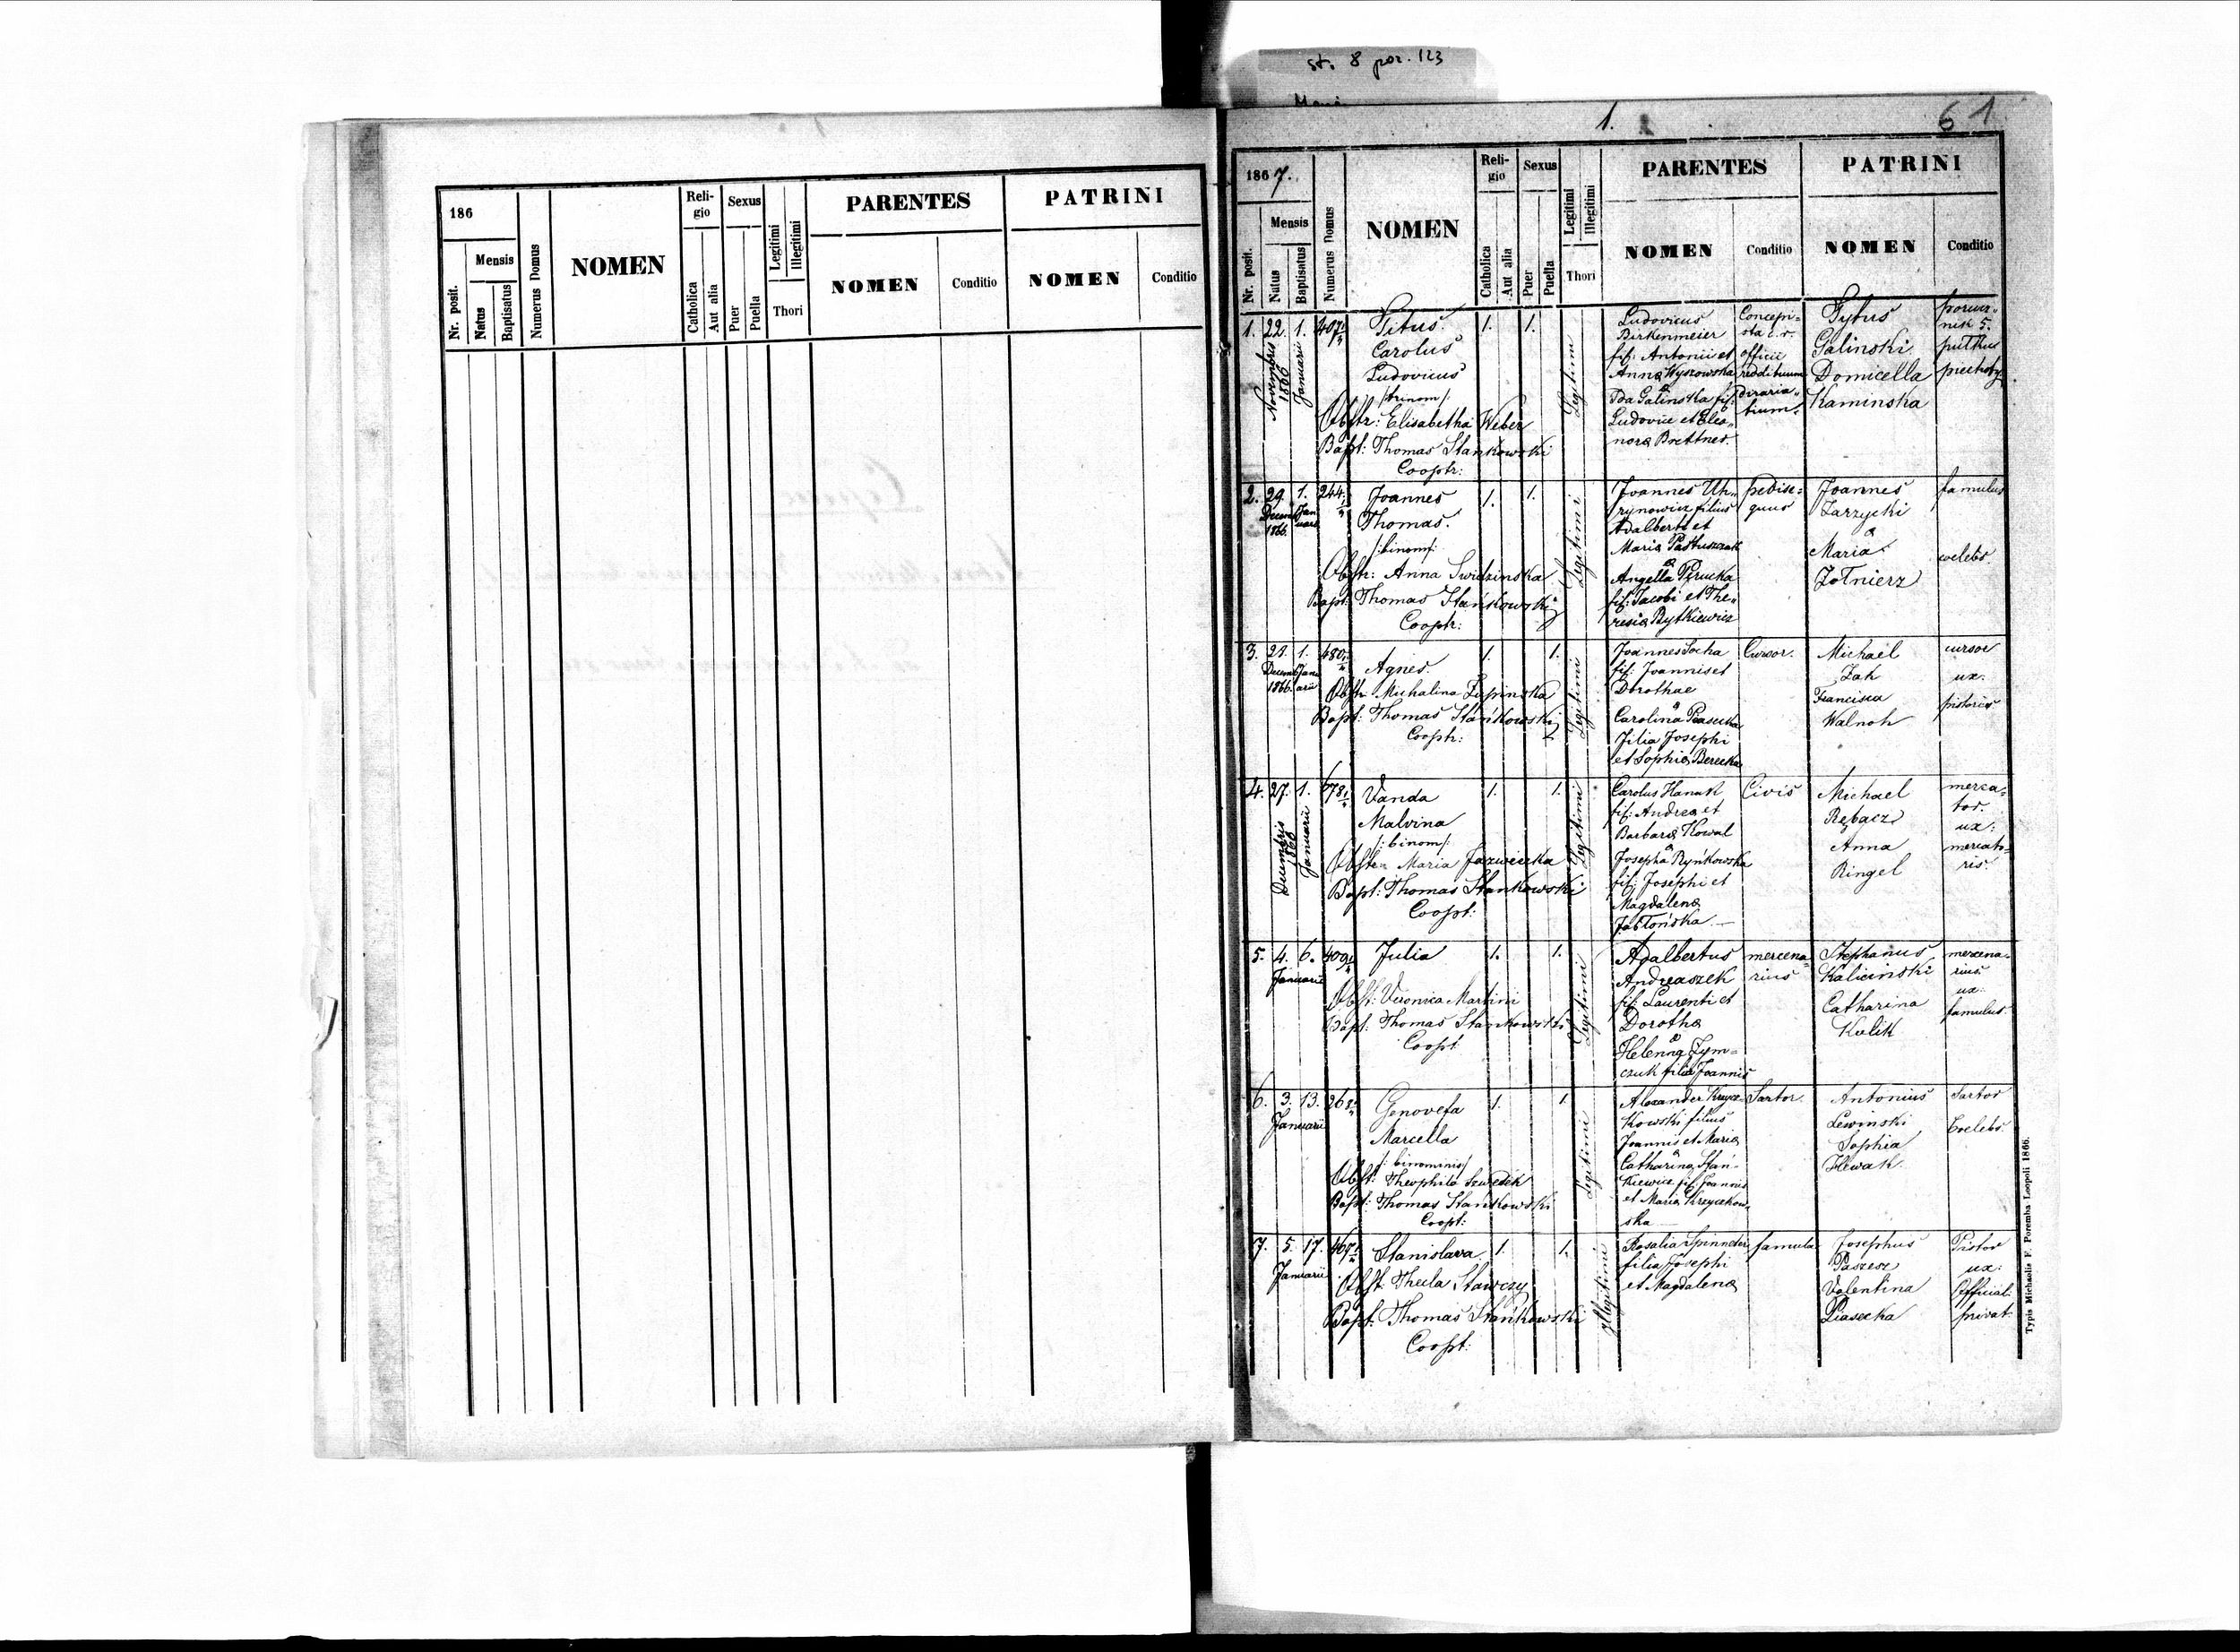 str. 8 poz. 123
1.
61
186
Mensis
Nr. posit.
Natus
Baptisatus
Numerus Domus
NOMEN
Reli-
gio
Catholica
Aut alia
Sexus
Puer
Puella
Legitimi
Illegitimi
Thori
PARENTES
NOMEN
Conditio
PATRINI
NOMEN
Conditio
1867.
Mensis
Nr. posit.
Natus
Baptisatus
Numerus Domus
NOMEN
Reli-
gio
Catholica
Aut alia
Sexus
Puer
Puella
Legitimi
Illegitimi
Thori
PARENTES
NOMEN
Conditio
PATRINI
NOMEN
Conditio
1. 22. 1.
Novembris
1866
Januarii
Titus
Carolus
Ludovicus
/:trinom:/
Obstr: Elisabetha Weber
Bapt: Thomas Stankowski
Cooptr:
1. 1.
Legitimi
Ludovicus
Birkenmeier
fil: Antonii et
Anna Wyszowska
&
Ida Galinska fil:
Ludovic et Eleo„
nora Brettner.
Concepi-
sta c. r.
officii
reddituum
Tytus
Galinski
Domicella
Kaminska
porucz„
nik 5.
pułku
piechoty
2. 29. 1. 244.
Decemb
1866.
Joannes
Thomas.
/:binom:/
Obstr: Anna Swidzinska
Bapt: Thomas Stańkowski
Cooptr:
1. 1.
Legitimi
Joannes Uh„
rynowicz filius
Adalberti et
Maria Pastuszczak
&
Angella Perucka
fil: Jacobi et The„
resia Rytkiewicz
pedise=
quus
Joannes
Zarzycki
&
Maria
Żołnierz
famulus
coelebs
3. 21. 1. 480
Decemb
1866.
Agnes
Obstr Michalina Zupinska
Bapt: Thomas Stańkowski
Cooptr:
1. 1.
Legitimi
Joannes Socha
fil: Joannis et
Dorothae
&
Carolina Piasecka
filia Josephi
et Sophia Berecka
Cursor.
Michael
Zak
Francisca
Walnoh
cursor
ux.
pistoris
4. 27. 1. 678
Decembris
1866
Januarii
Vanda
Malvina
/:binom:/
Obstr Maria Jazwiecka
Bapt: Thomas Stankowski
Coopt:
1. 1.
Legitimi
Carolus Hanak
fil: Andrea et
Barbara Kowal
&
Josepha Ryńkowska
fil: Josephi et
Magdalena
Jabłońska
Civis
Michael
Rębacz
Anna
Ringel
merca=
tor.
ux:
mercato-
ris.
5. 4. 6. 409
Januarii
Julia
Obst: Veronica Martini
Bapt. Thomas Stankowski
Coopt
1. 1.
Legitimi
Adalbertus
Andreaszek
fil. Laurenti et
Dorotha
&
Helenna Zym=
czuk filia Joannis
mercena
rius
Stephanus
Kalicinski
Catharina
Kulik
mercena-
rius.
ux.
famulus
6. 3. 13. 268
Januarii
Genovefa
Marcella
/:binominis/
Obst: Theophila Szwedek
Bapt: Thomas Stańkowski
Coopt:
1. 1.
Legitimi
Alexander Krzycz-
kowski filius
Joannis et Maria
&
Catharina Stań-
kiewicz fil. Joannis
et Maria Krzyczkow„
ska
Sartor
Antonius
Lewinski
Sophia
Sartor
Coelebs
7. 5. 17.
Januarii
Stanislava.
Obst Thecla Stawczy
Bapt: Thomas Stańkowski
Coopt:
1. 1.
Illegitimi
Rosalia Spinneter
filia Josephi
et Magdalena
famula
Josephus
Paszesz
Valentina
Piasecka
Pistor
ux:
Official:
privat.
Typis Michaelis F. Poremba Leopoli 1866.